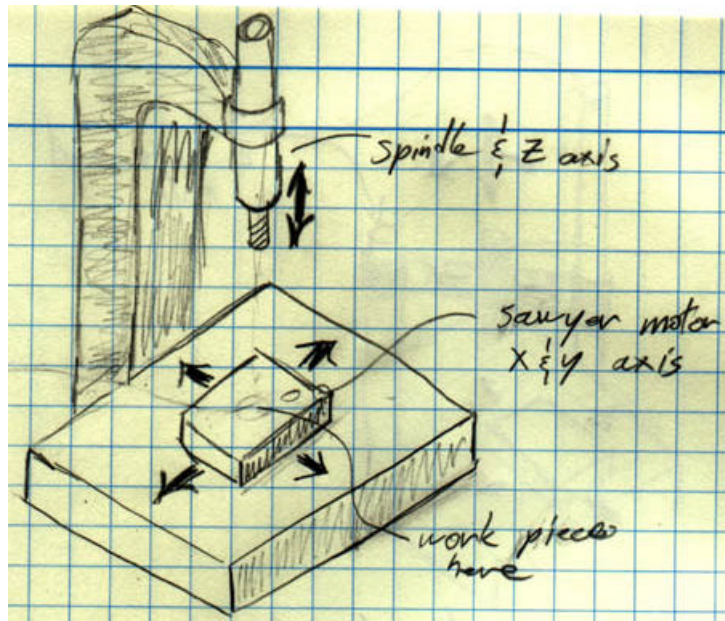 spindle & Z axis
sawyer motor
X & y axis
work piece
here